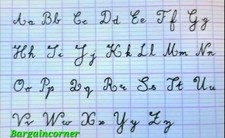 Aa Bb Cc Dd Ee Ff Gg
Hh Ii Jj Kk Ll Mm Nn
Oo Pp Qq Rr Ss Tt Uu
Vv Ww Xx Yy Zz
Bargaincorner